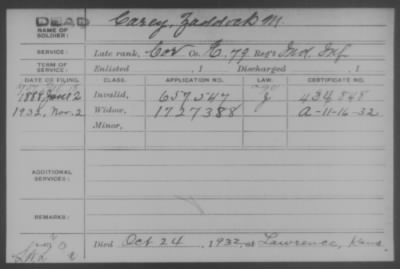 DEAD
NAME OF SOLDIER: Carey, Zaddock M.
SERVICE: Late rank, Cor Co. E, 79 Reg't Ind Inf
TERM OF SERVICE: Enlisted , 1 Discharged , 1
DATE OF FILING. CLASS. APPLICATION NO. LAW. CERTIFICATE NO.
1888 June 2 Invalid, 657,547 J 434,848
1932, Nov. 2 Widow, 1727388 A-11-16-32
Minor,
ADDITIONAL SERVICES:
REMARKS:
Died Oct 24, 1932, at Lawrence, Kans.